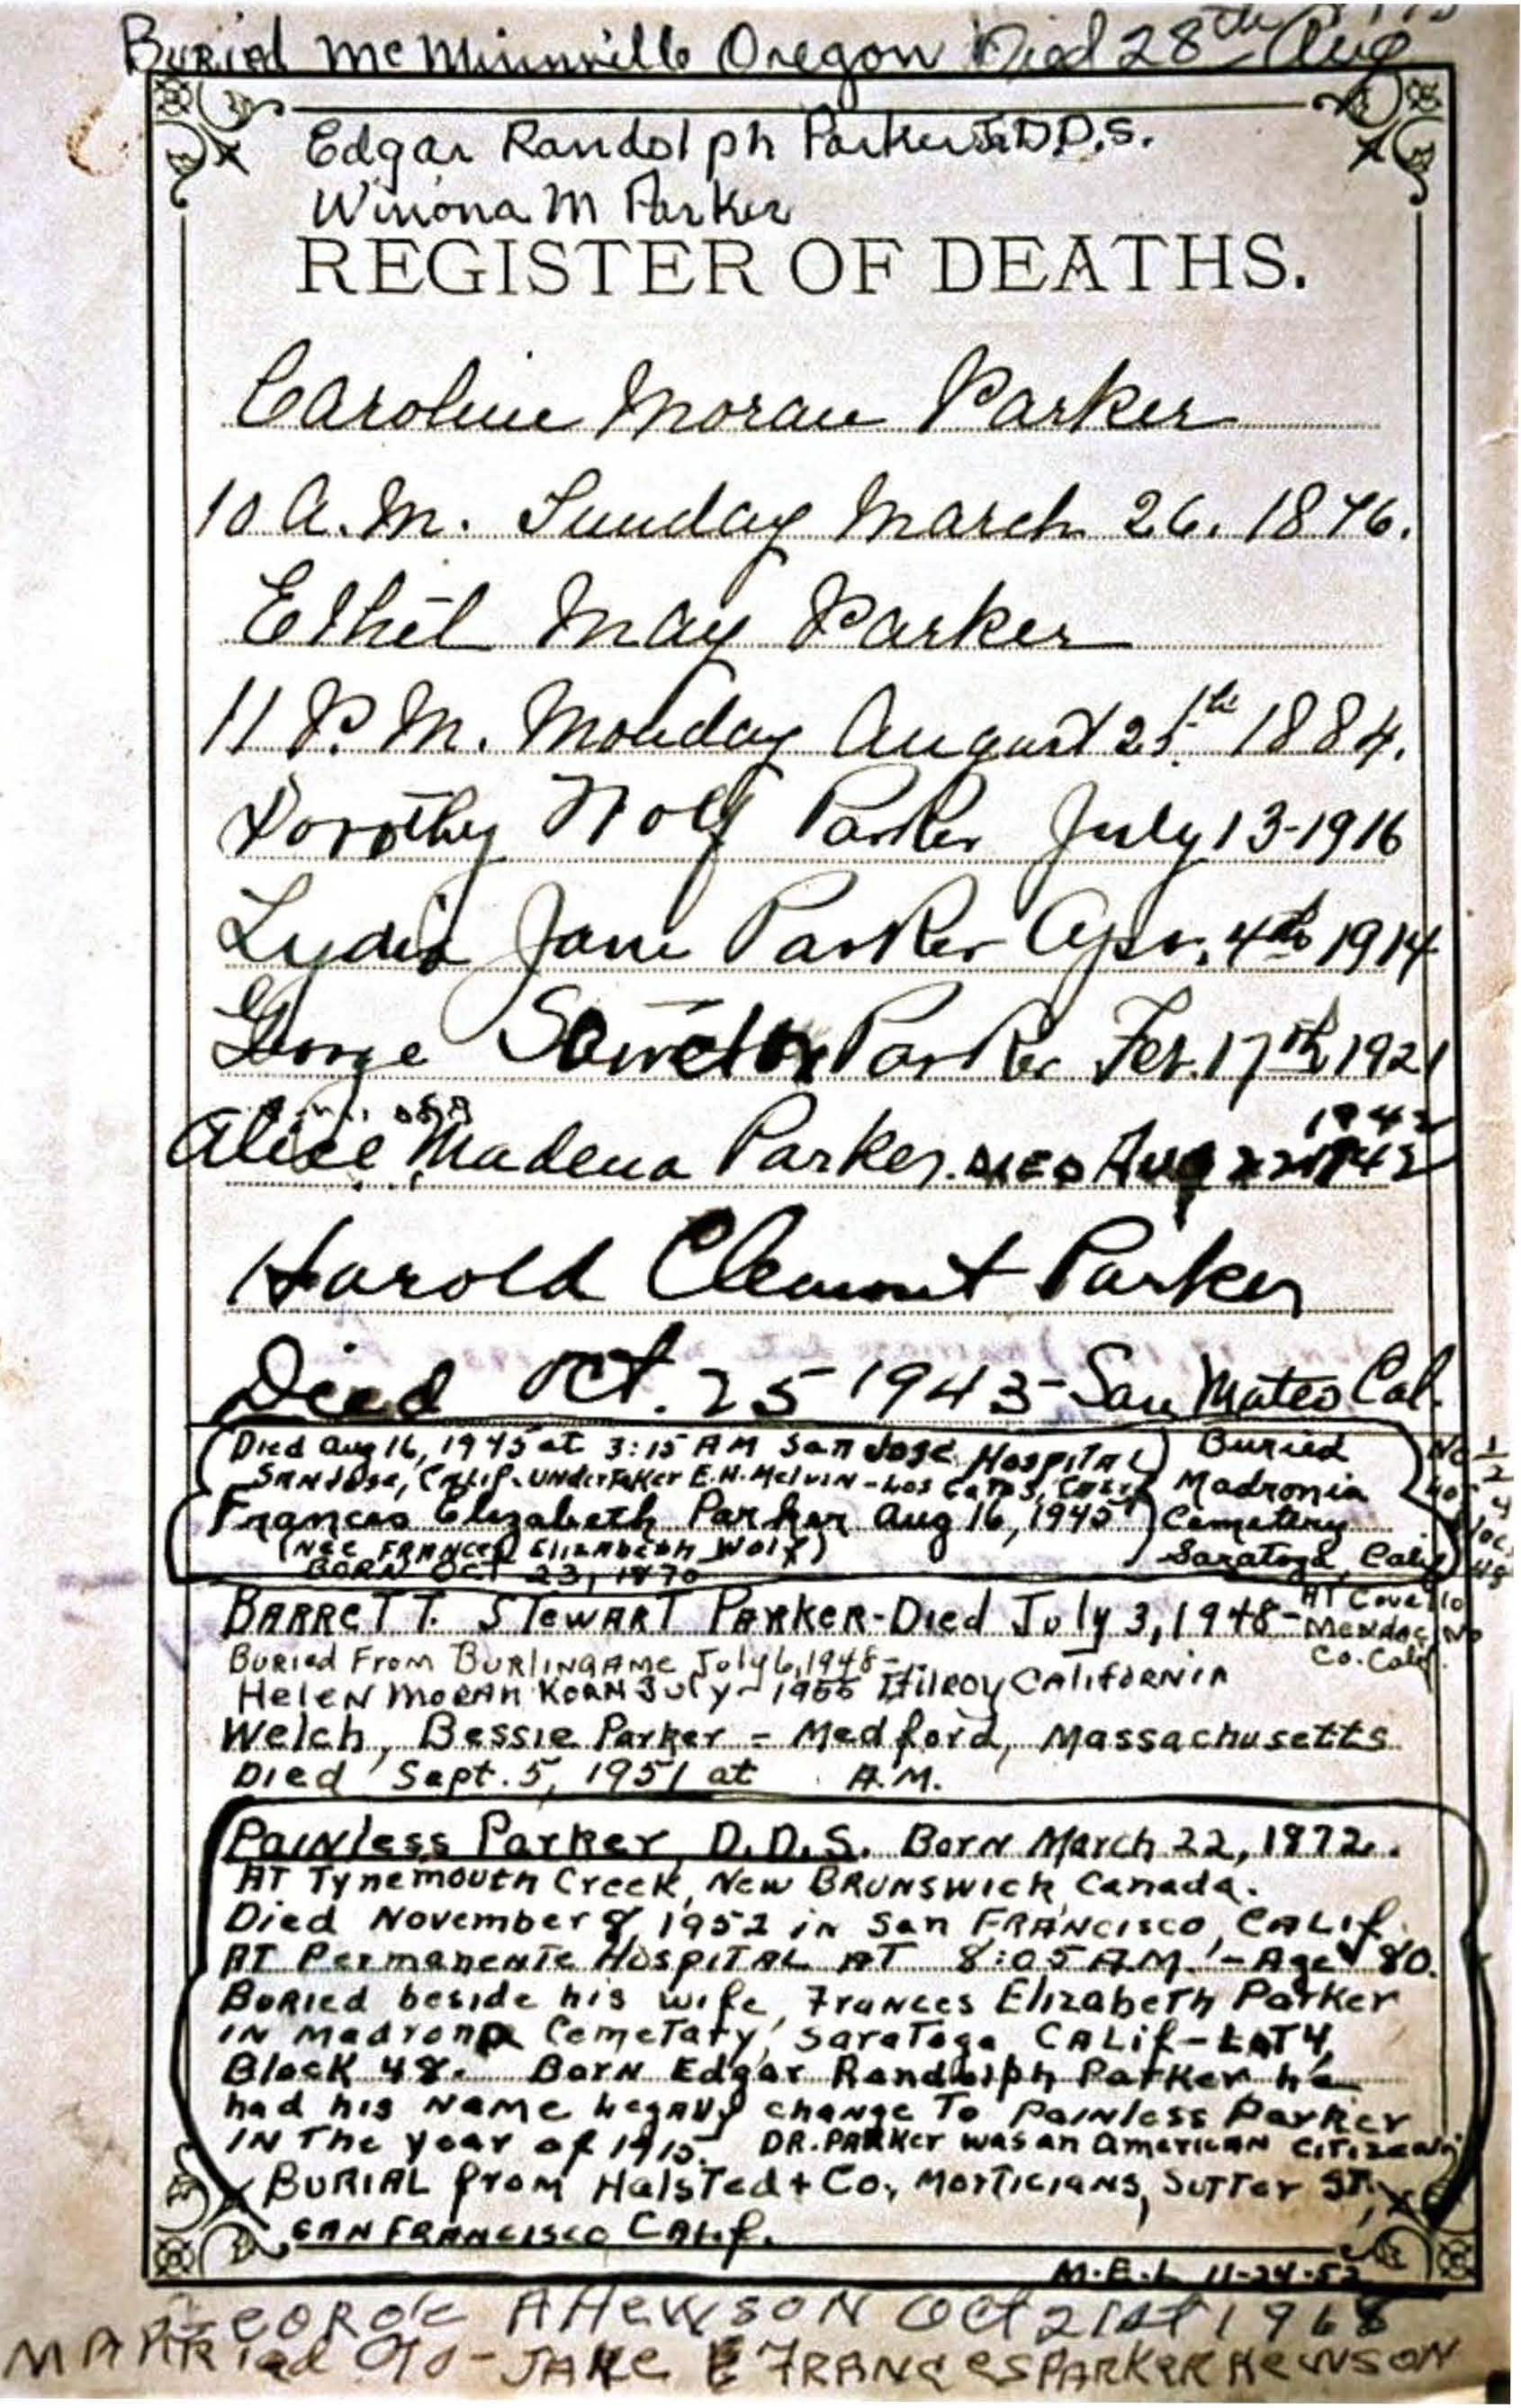 Buried McMinnville Oregon Died 28th Aug
Edgar Randolph Parker Jr D.D.S.
Winona M Parker
REGISTER OF DEATHS.
Caroline Moran Parker
10 A.M. Sunday March 26. 1876.
Ethel May Parker
11 P.M. Monday August 25th 1884.
Dorothy Wolf Parker July 13-1916
Lydia Jane Parker Apr. 4th 1914
George Parker Feb. 17th 1921
1942
Alice Madena Parker. DIED Aug 22 1942
Harold Clement Parker
Died Oct. 25 1943 - San Mateo Cal.
Died Aug 16, 1945 at 3:15 AM San Jose Hospital
San Jose, Calif. Undertaker E.H. Melvin - Los Gatos, Calif
Frances Elizabeth Parker Aug 16, 1945
(NEE FRANCES ELIZABETH WOLF)
BORN OCT 23, 1870
Buried
Madronia
Cemetery
Saratoga, Calif
No 1/2
Lot 4
Bloc
48
BARRETT. STEWART PARKER - Died July 3, 1948 - AT Covello
Mendocino
Co. Calif.
Buried From BURLINGAME July 6, 1948 -
HELEN MORAN KORN July - 1955 Gilroy CALIFORNIA
Welch, Bessie Parker - Medford, Massachusetts
Died Sept. 5, 1951 at A.M.
PAINless Parker D.D.S. Born March 22, 1872.
AT Tynemouth Creek, New BRUNSWICK Canada.
Died November 8, 1952 in San FRANCISCO, CALIF.
AT Permanente Hospital AT 8:05 A.M. - Age 80.
Buried beside his wife, Frances Elizabeth Parker
IN Madrona Cemetary, Saratoga CALIF - LOT 4,
Block 48. Born Edgar Randolph Parker he
had his name legally change To PAINless Parker
IN The year of 1915. DR. PARKER was an American citizen
BURIAL from Halsted + Co, Morticians, Sutter ST,
SAN FRANCISCO CALIF.
M.E.L 11-24-52
GEORGE A HEWSON Oct 21st 1968
MARRIED TO - JANE E FRANCES PARKER HEWSON